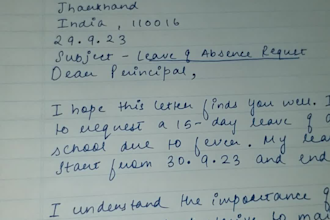 Jharkhand
India, 110016
29.9.23
Subject - Leave of Absence Request
Dear Principal,
I hope this letter finds you well. I
to request a 15-day leave of a
school due to fever. My lea
start from 30.9.23 and end
I understand the importance of